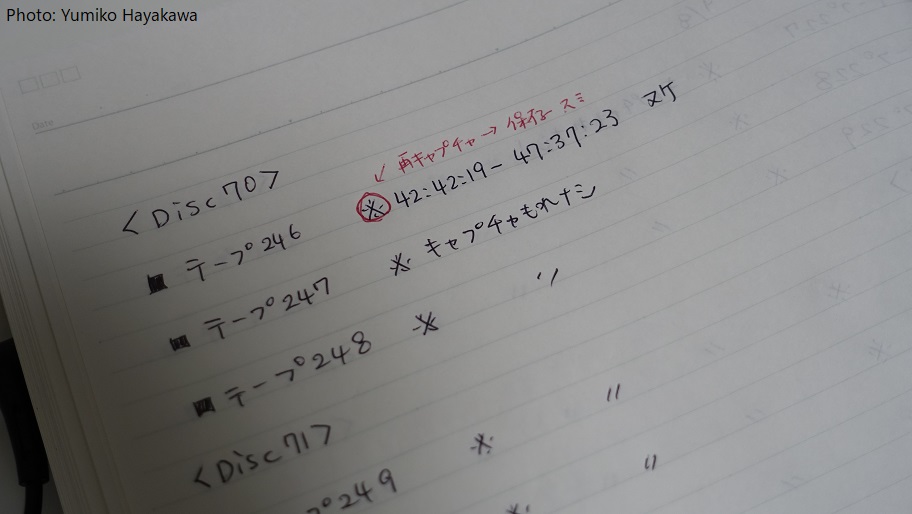 Photo: Yumiko Hayakawa
Date
↙ 再キャプチャ → 保存 スミ
<Disc70>
■ テープ246 ※ 42:42:19 - 47:37:23 ヌケ
■ テープ247 ※ キャプチャもれナシ
■ テープ248 ※ 〃
<Disc71> ※ 〃
プ249 ※ 〃